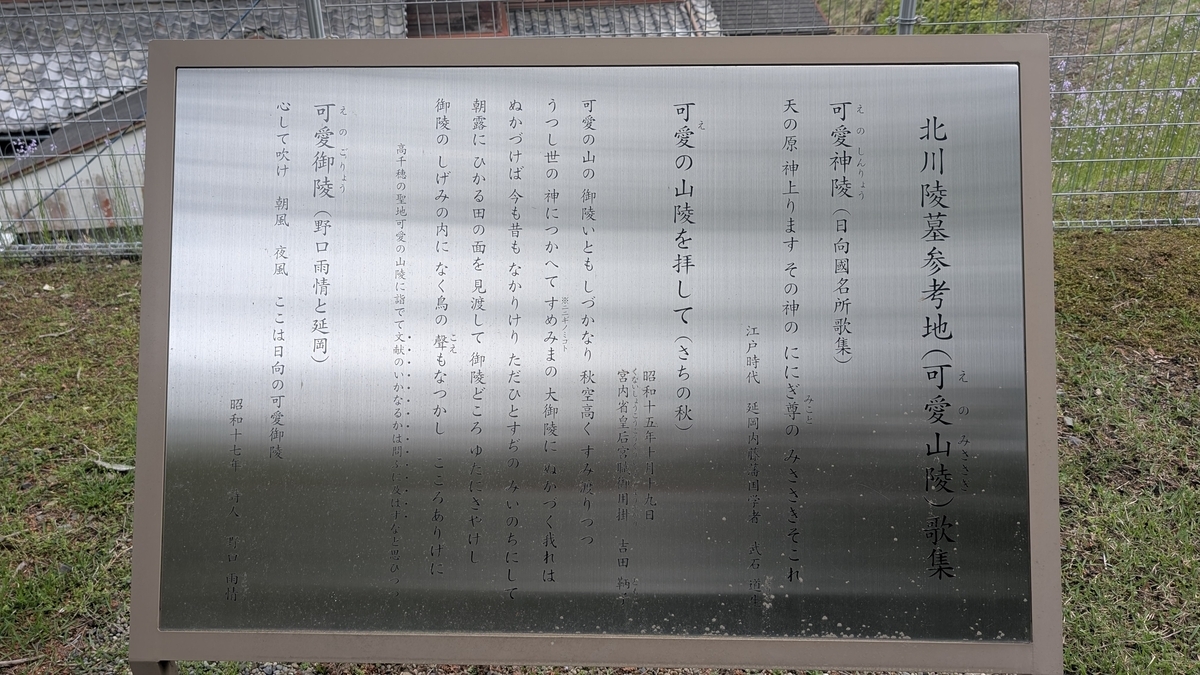 北川陵墓参考地（可愛山陵）歌集
えの みささぎ
可愛神陵（日向國名所歌集）
えのしんりょう
天の原 神上ります その神の ににぎ尊の みささきそこれ
みこと
江戸時代 延岡内藤藩国学者 武石 道生
可愛の山陵を拝して（さちの秋）
え
昭和十五年十月十九日
宮内省皇后宮職御用掛 吉田 鞆子
可愛の山の 御陵いとも しづかなり 秋空高く すみ渡りつつ
うつし世の 神につかへて すめみまの 大御陵に ぬかづく我れは
※ニニギノミコト
ぬかづけば 今も昔も なかりけり ただひとすぢの みいのちにして
朝露に ひかる田の面を 見渡して 御陵どころ ゆたにさやけし
御陵の しげみの内に なく鳥の 聲もなつかし こころありけに
こえ
高千穂の聖地可愛の山陵に詣でて文献のいかなるかは問ふに及はすなと思ひつゝ
可愛御陵（野口雨情と延岡）
えのごりょう
心して吹け 朝風 夜風 ここは日向の可愛御陵
昭和十七年 詩人 野口 雨情